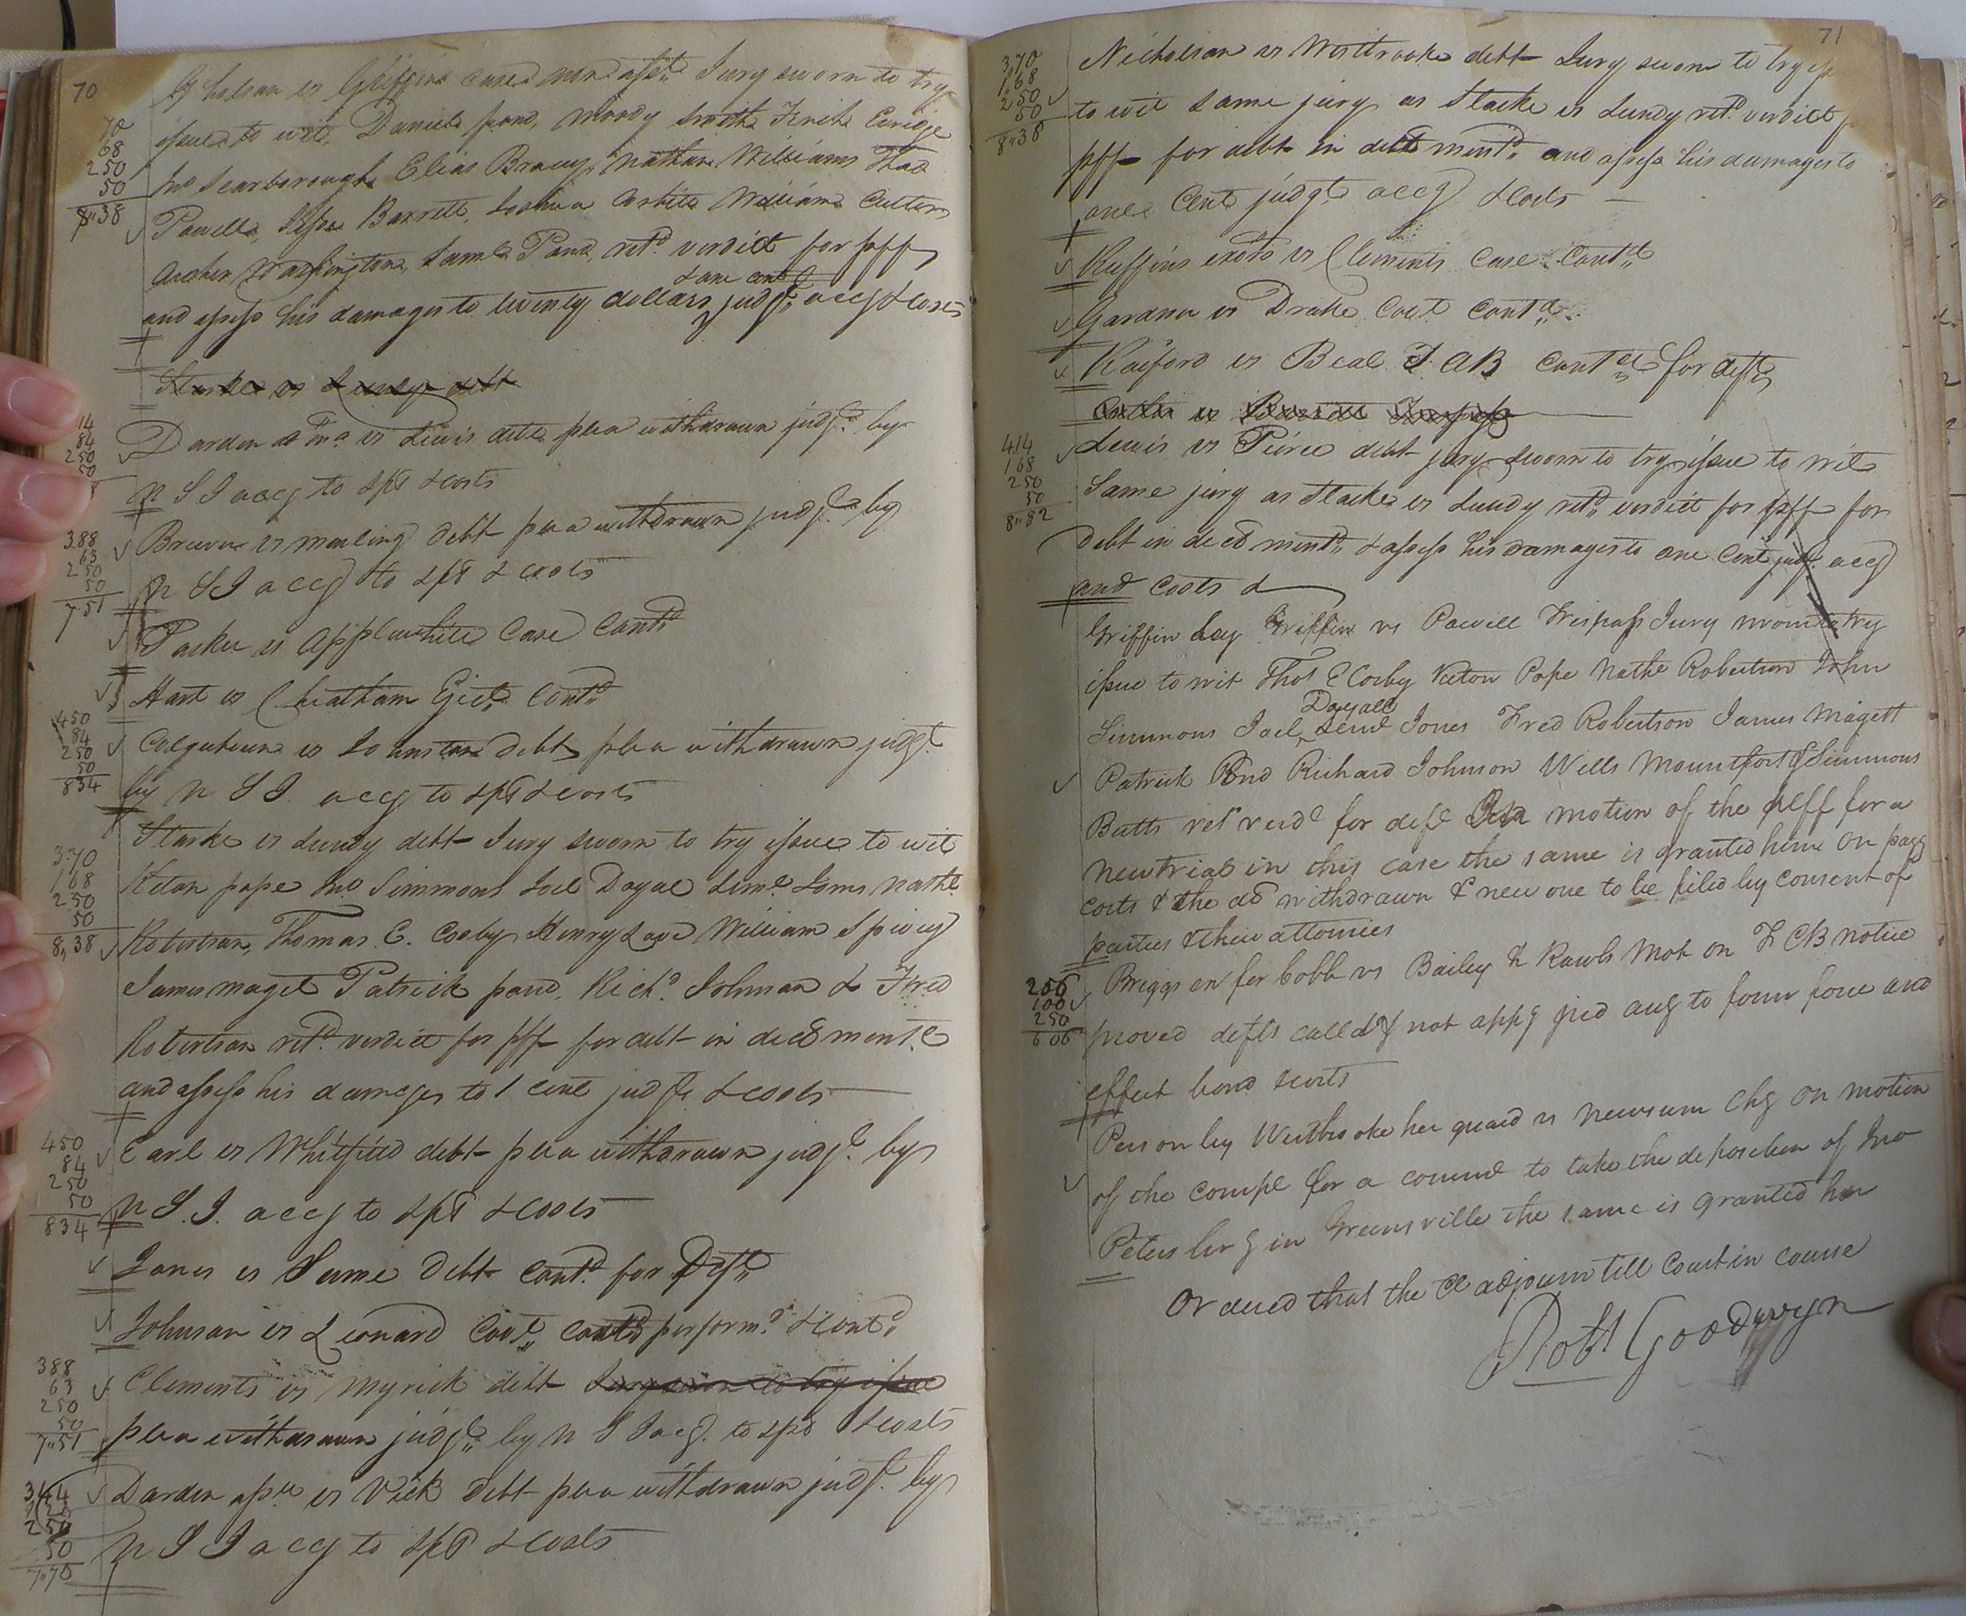 70
Gholson vs Griffin case non asst Jury sworn to try
issue to wit, Daniel pond, Moody Smith
70
68
250
50
8"38
Jno Scarborough Elias Nathan Williams Thad
Powell, Jesse Barrett, Joshua William
Archer Washington, Saml Pond, retd verdict for plff
& one cent
and assess his damages to twenty dollars judgt accg & costs
Starke vs Lundy debt
14
84
250
50
8
Darden vs Lewis debt plea withdrawn judgt by
N S I accg to spl & costs
388
63
250
50
7.51
debt plea withdrawn judgt by
N S I accg to spl & costs
Parker vs Applewhite Case Contd
Hart vs Cheatham Eject Contd
450
84
250
50
834
Colquhoun vs Johnston Debt plea withdrawn judgt
by N S I accg to spl & costs
Starke vs Lundy debt Jury sworn to try issue to wit
370
168
250
50
8,38
pope Jno Simmons Joel Doyal Nathl
Robertson, Thomas E. Cosby, Henry William Spivey
James Magit Patrick pond, Richd Johnson & Fred
Robertson retd verdict for plff for debt in decl mentd
and assess his damages to 1 cent judgt & costs
450
84
250
50
834
Earl vs Whitfield debt plea withdrawn judgt by
N. S. I. accg to spl & costs
Jones vs Same Debt Contd for Deft
Johnson vs Leonard Covt performd & Contd
388
63
250
50
7"51
Clements vs Myrick debt Jury sworn to try issue
plea withdrawn judgt by N S I accg. to spl & costs
344
250
50
7"70
Darden vs Vick Debt plea withdrawn judgt by
N S I accg to spl & costs
71
370
168
250
50
8"38
Nicholson vs Westbrooke debt Jury sworn to try iss
to wit same jury as Starke vs Lundy retd verdict
plff for debt in mentd and assess his damages to
one Cent judgt accg & Costs
Ruffins exors vs Clements Case Contd
Gardner vs Drake Covt Contd
Raiford vs Beal T A B Contd for deft
414
168
250
50
8"82
Lewis vs Pierce debt jury sworn to try issue to wit
Same jury as Starke vs Lundy retd verdict for plff for
debt in decd mentd & assess his damages to one Cent judgt accg
and costs &
Griffin by Griffin vs Powell Trespass Jury sworn to try
issue to wit Thos E Cosby Pope Nathl Robertson John
Doyall
Simmons Joel Jones Fred Robertson James Magett
Patrick Pond Richard Johnson Wells Mountfort & Simmons
Butts ret verdt for deft On motion of the plff for a
New trial in this case the same is granted him on payg
costs & the withdrawn & new one to be filed by consent of
parties & their attornies
256
100
250
606
Briggs exr for Cobb vs Bailey & Rawls Mot on F C B notice
proved defts called & not appg jud accg to form force and
effect bond & costs
Person by Westbrooke her guard vs Newsum Chy On motion
of the compl for a comme to take the deposition of Jno
Peters living in Greensville the same is granted her
Ordered that the Ct adjourn till Court in course
Robt Goodwyn